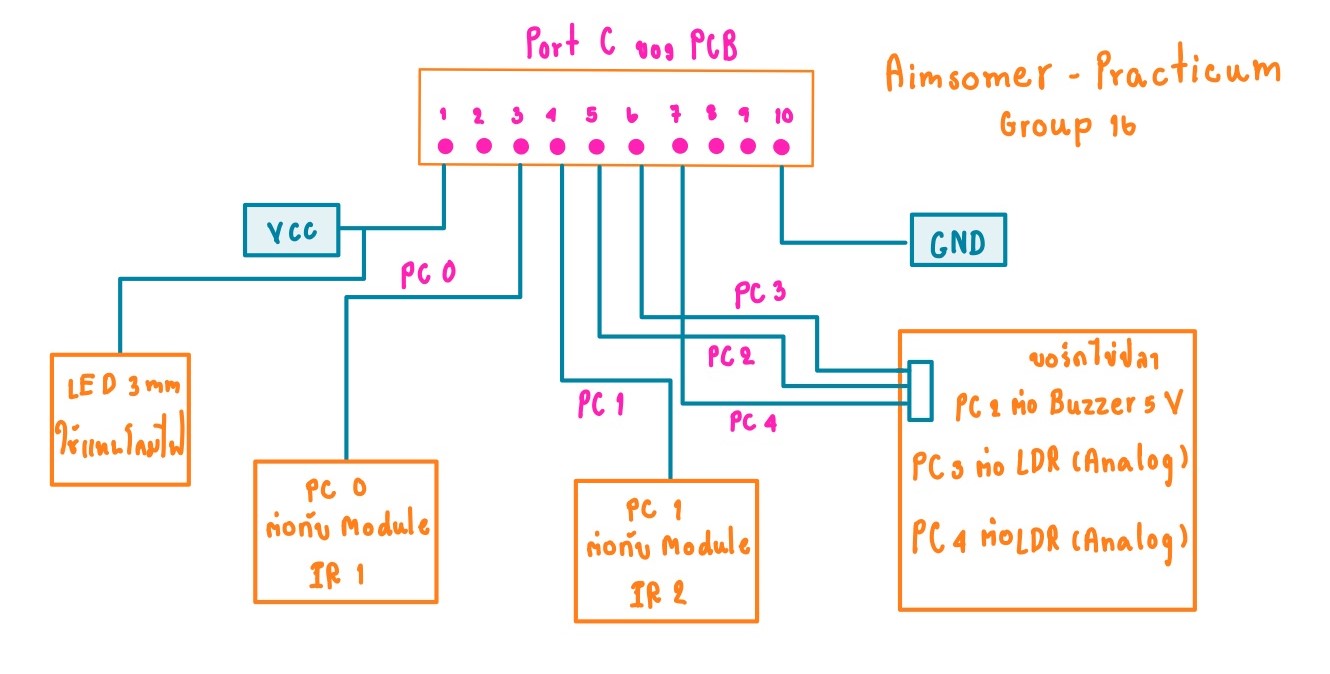 Port C ของ PCB
Aimsomer - Practicum
Group 16
1 2 3 4 5 6 7 8 9 10
VCC
GND
PC 0
PC 3
PC 2
PC 1
PC 4
LED 3 mm
ใช้แทนโคมไฟ
PC 0
ต่อกับ Module
IR 1
PC 1
ต่อกับ Module
IR 2
บอร์ดไข่ปลา
PC 2 ต่อ Buzzer 5 V
PC 3 ต่อ LDR (Analog)
PC 4 ต่อ LDR (Analog)